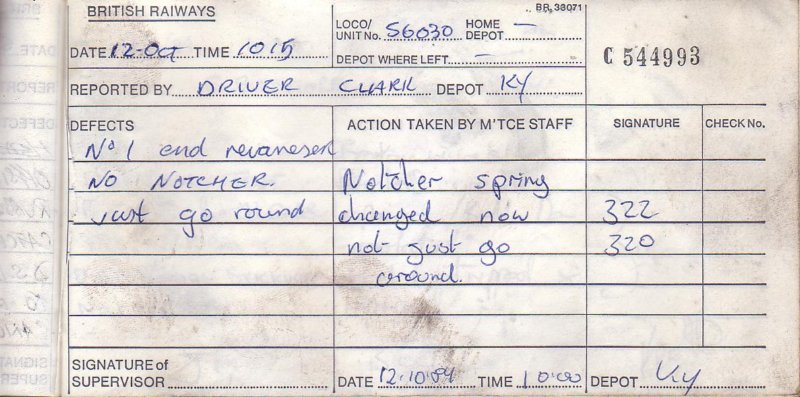 BRITISH RAIWAYS
BR, 33071
DATE 12-Oct TIME 1015
LOCO/ UNIT No. 56030 HOME DEPOT —
DEPOT WHERE LEFT —
C 544993
REPORTED BY DRIVER CLARK DEPOT KY
DEFECTS ACTION TAKEN BY M'TCE STAFF SIGNATURE CHECK No.
No 1 end
NO NOTCHER. Notcher spring
Just go round changed now 322
not just go 320
around.
SIGNATURE of SUPERVISOR
DATE 12.10.84 TIME 10:00 DEPOT KY